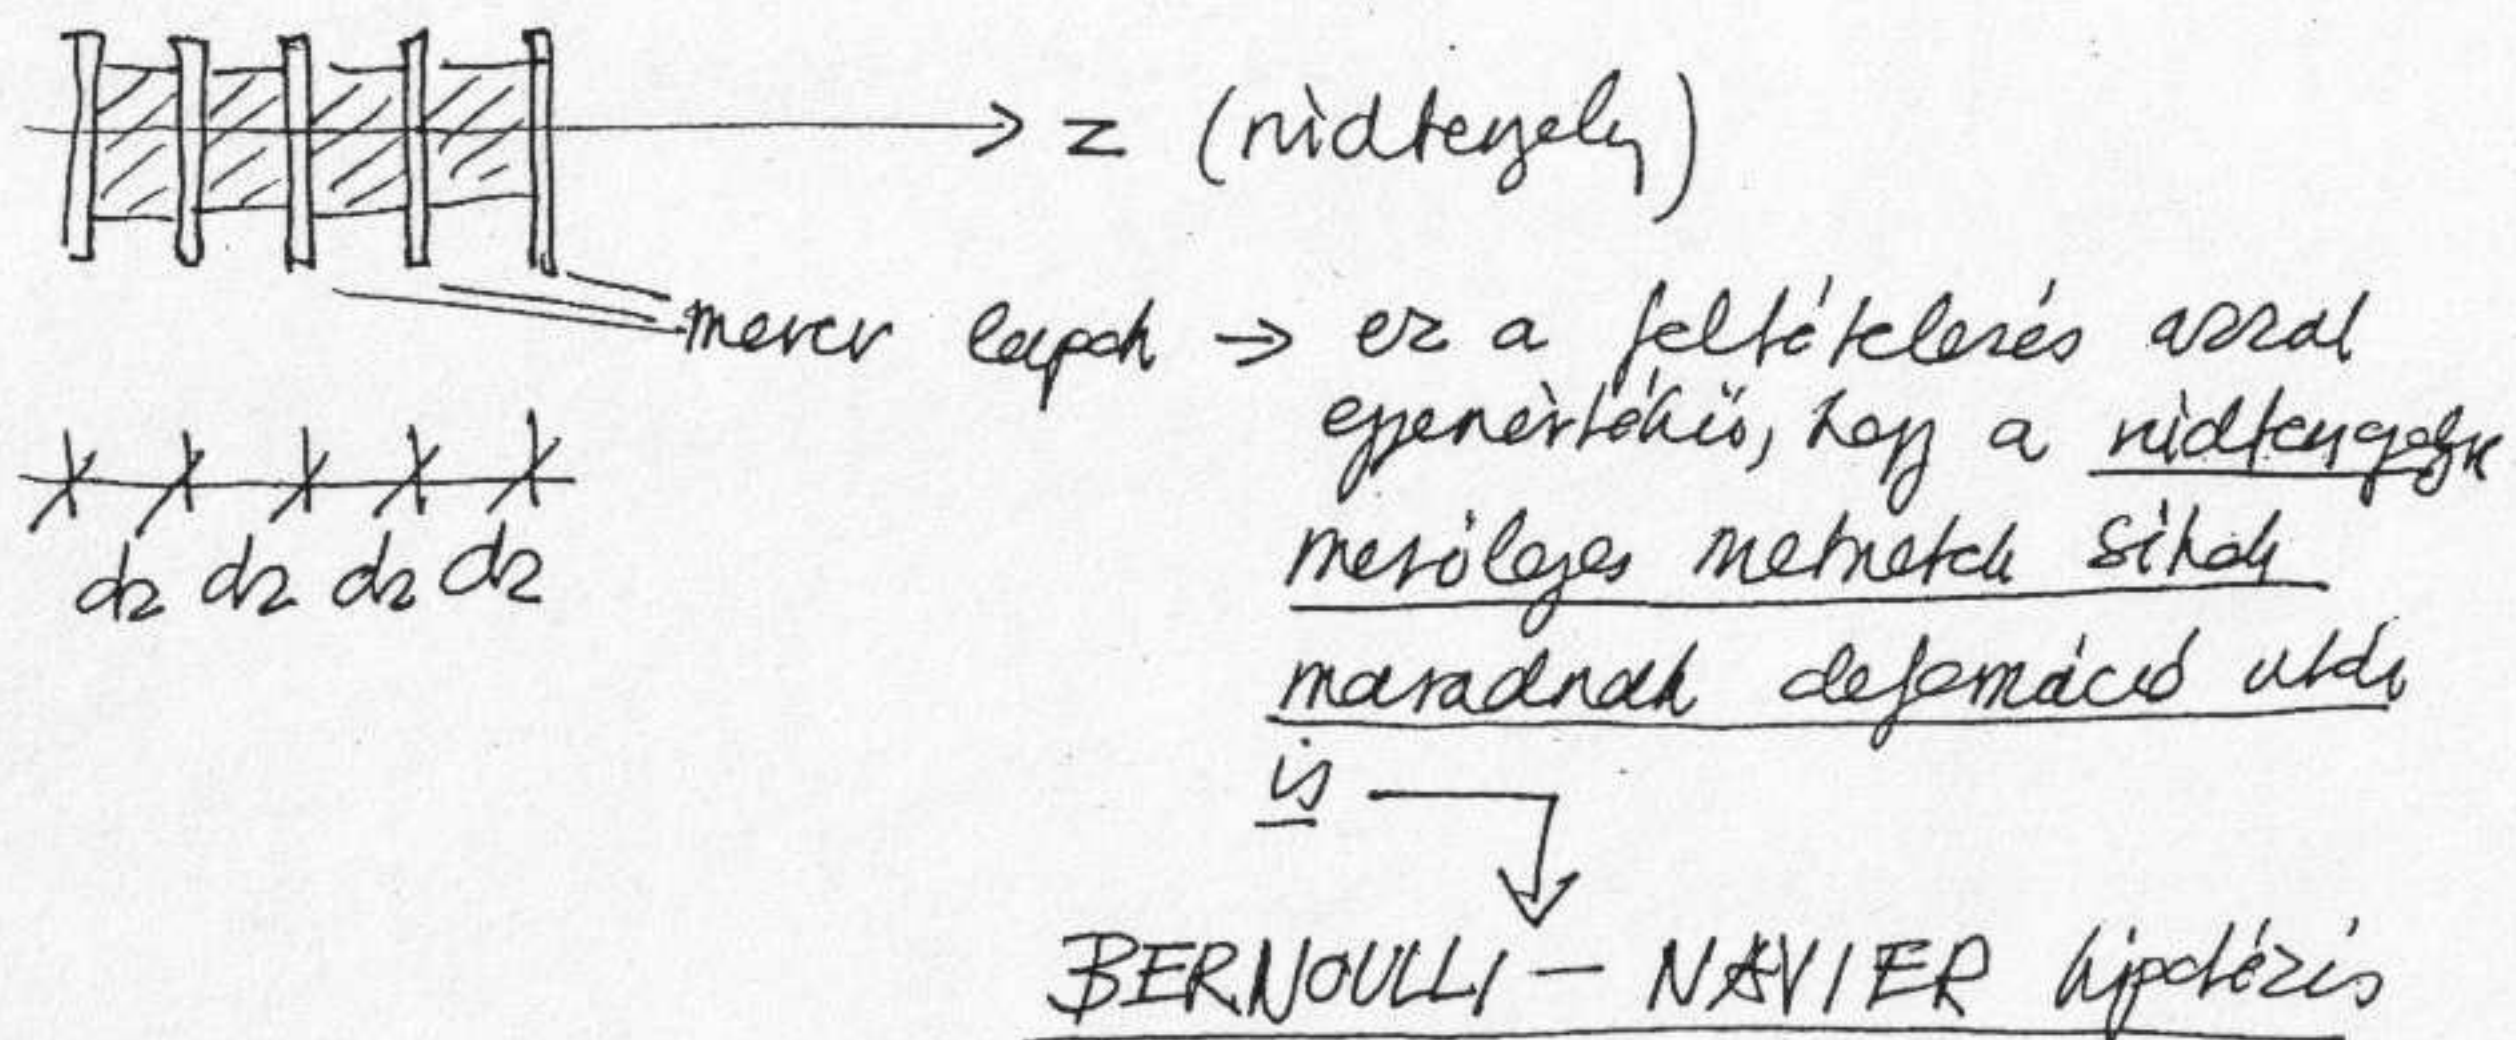 z (rúdtengely)
merev lapok → ez a feltételezés azzal
egyenértékű, hogy a rúdtengelyre
merőleges metszetek síkok
maradnak deformáció után
is
dz dz dz dz
BERNOULLI – NAVIER hipotézis